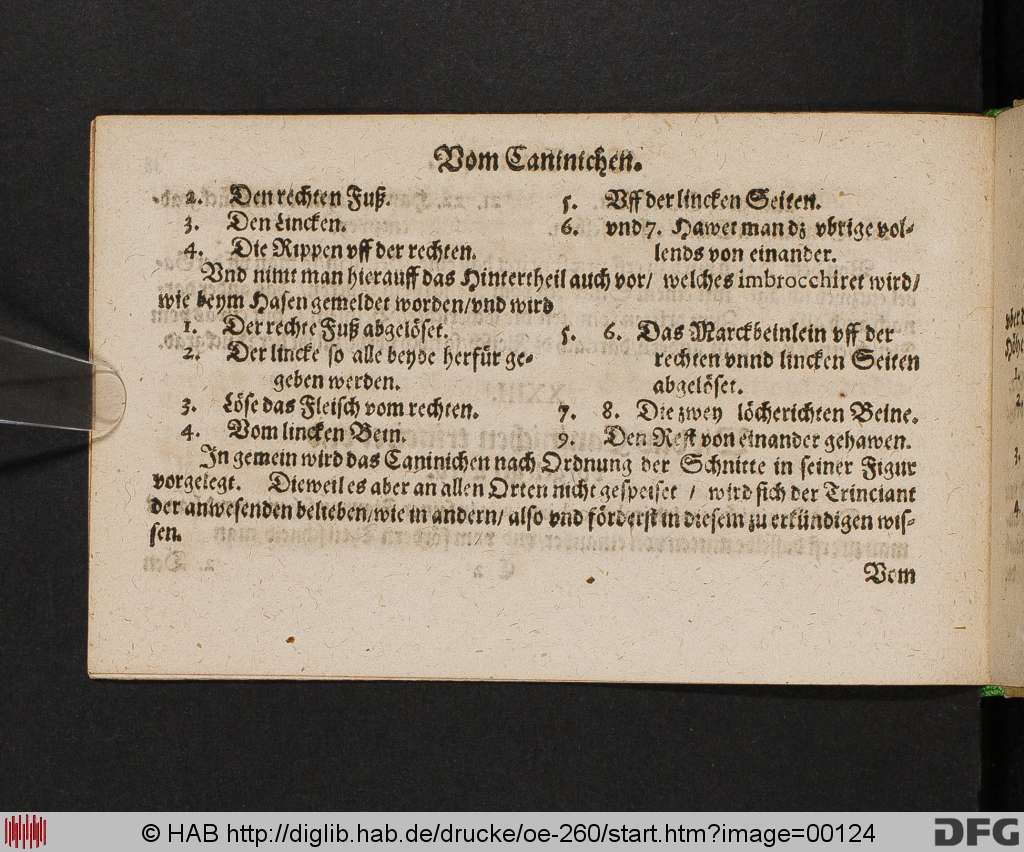 Vom Caninichen.
2. Den rechten Fuß.
3. Den Lincken.
4. Die Rippen vff der rechten.
5. Vff der lincken Seiten.
6. vnd 7. Hawet man dz vbrige vol-
lends von einander.
Vnd nimt man hierauff das Hintertheil auch vor/ welches imbrocchiret wird/
wie beym Hasen gemeldet worden/vnd wird
1. Der rechte Fuß abgelöset.
2. Der lincke so alle beyde herfür ge-
geben werden.
3. Löse das Fleisch vom rechten.
4. Vom lincken Bein.
5. 6. Das Marckbeinlein vff der
rechten vnnd lincken Seiten
abgelöset.
7. 8. Die zwey löcherichten Beine.
9. Den Rest von einander gehawen.
In gemein wird das Caninichen nach Ordnung der Schnitte in seiner Figur
vorgelegt. Dieweil es aber an allen Orten nicht gespeiset / wird sich der Trinciant
der anwesenden belieben/wie in andern/ also vnd förderst in diesem zu erkündigen wis-
sen.
Vom
© HAB http://diglib.hab.de/drucke/oe-260/start.htm?image=00124
DFG